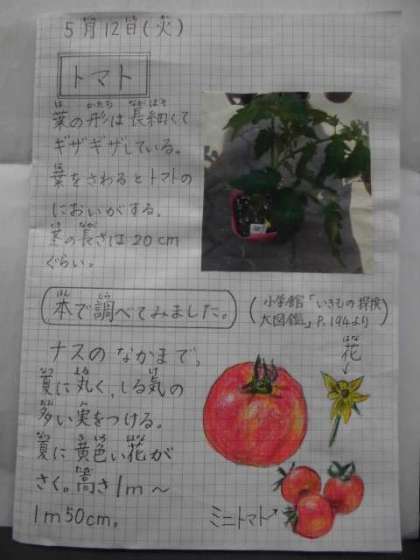 5月12日(火)
トマト
葉の形は長細くて
ギザギザしている。
葉をさわるとトマトの
においがする。
葉の長さは20cm
ぐらい。
本で調べてみました。
(小学館「いきもの探検
大図鑑」P.194より)
ナスのなかまで、
夏に丸く、しる気の
多い実をつける。
夏に黄色い花が
さく。高さ1m～
1m50cm。
花
ミニトマト